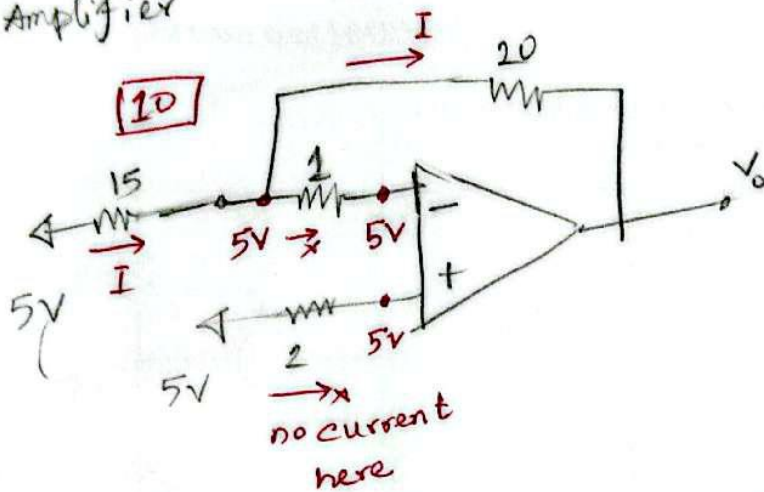 Amplifier
I
20
10
15
1
5V
x
5V
-
I
V₀
+
5V
2
5V
5V
x
no current
here